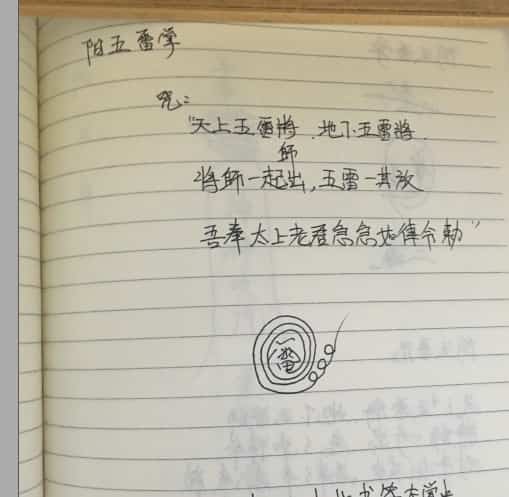 阳五雷掌
咒:
"天上五雷將.地下五雷將.
师
将師一起出,五雷一其放
吾奉太上老君急急如律令勅"
雷